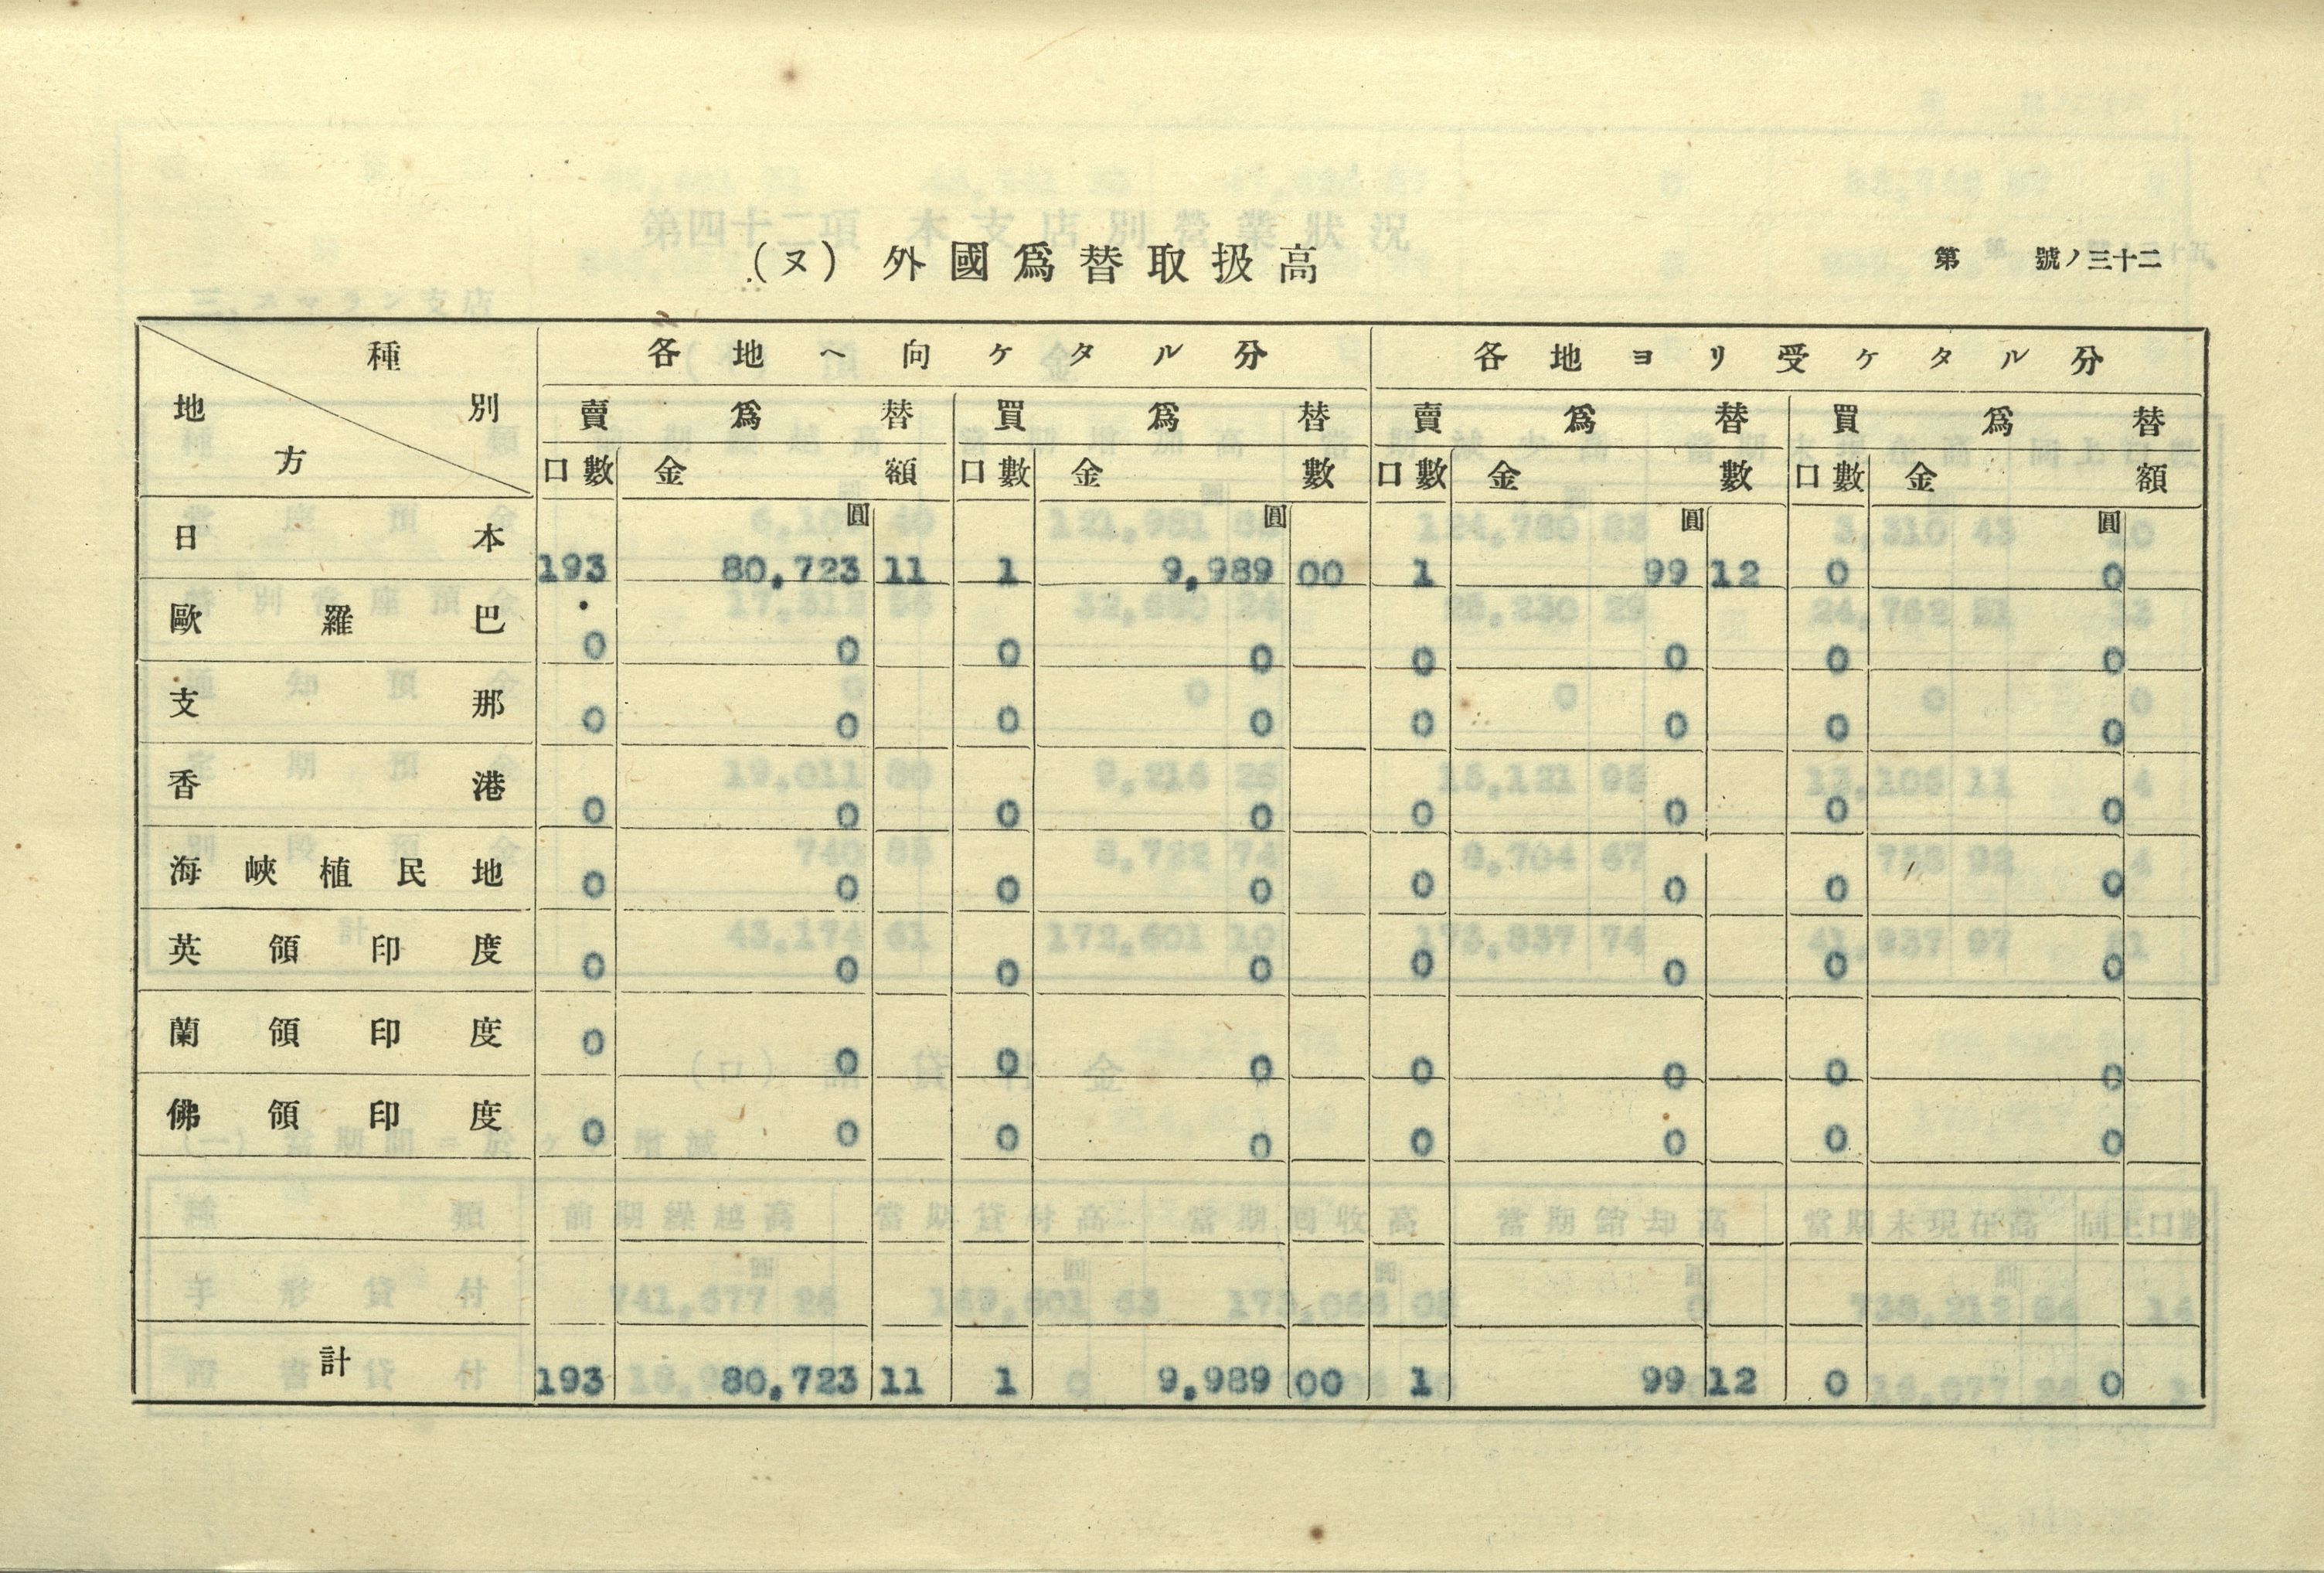 (ヌ) 外國爲替取扱高
第 號ノ三十二
種別 地方 各地ヘ向ケタル分 各地ヨリ受ケタル分
賣爲替 買爲替 賣爲替 買爲替
口數 金額 口數 金數 口數 金數 口數 金額
圓 圓 圓 圓
日本 193 80,723 11 1 9,989 00 1 99 12 0 0
歐羅巴 0 0 0 0 0 0 0 0
支那 0 0 0 0 0 0 0 0
香港 0 0 0 0 0 0 0 0
海峽植民地 0 0 0 0 0 0 0 0
英領印度 0 0 0 0 0 0 0 0
蘭領印度 0 0 0 0 0 0 0 0
佛領印度 0 0 0 0 0 0 0 0
計 193 80,723 11 1 9,989 00 1 99 12 0 0